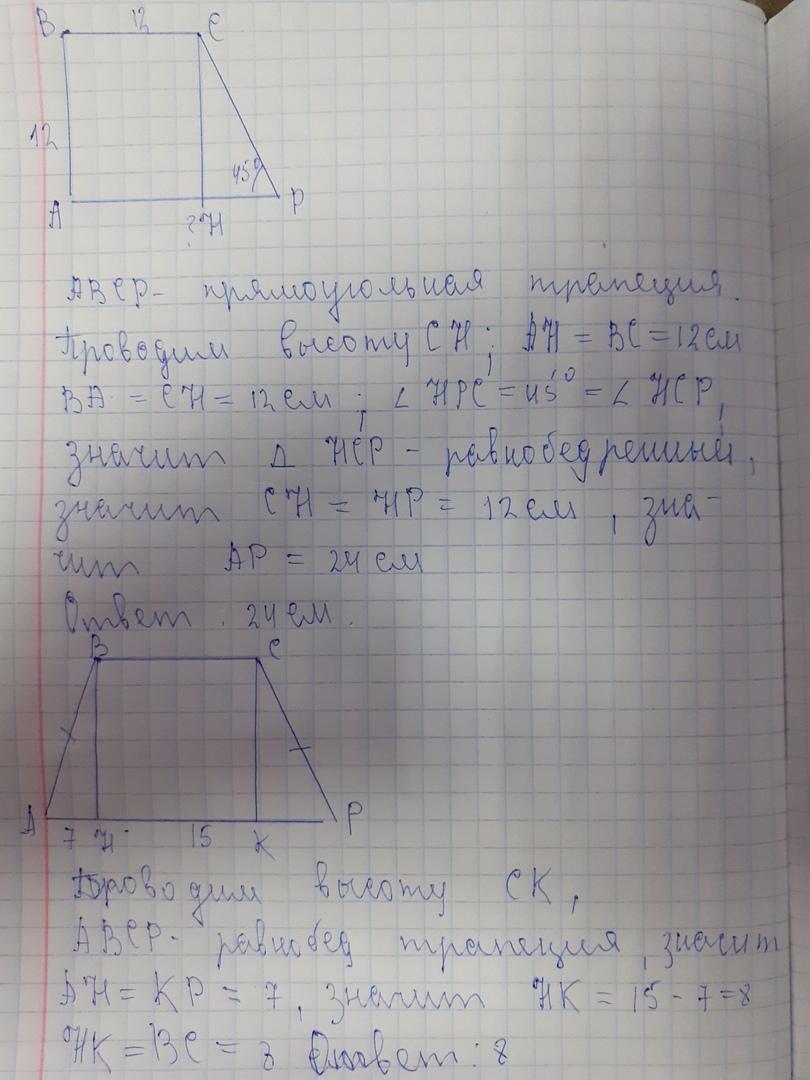 B 12 C
12
45°
A ?H P
ABCP- прямоугольная трапеция.
Проводим высоту CH; AH = BC = 12 см
BA = CH = 12 см ; ∠ HPC = 45° = ∠ HCP,
значит Δ HCP - равнобедренный,
значит CH = HP = 12 см , зна-
чит AP = 24 см
Ответ : 24 см .
B C
A 7 H 15 K P
Проводим высоту CK,
ABCP- равнобед трапеция, значит
AH = KP = 7 , значит HK = 15 - 7 = 8
HK = BC = 8 Ответ : 8